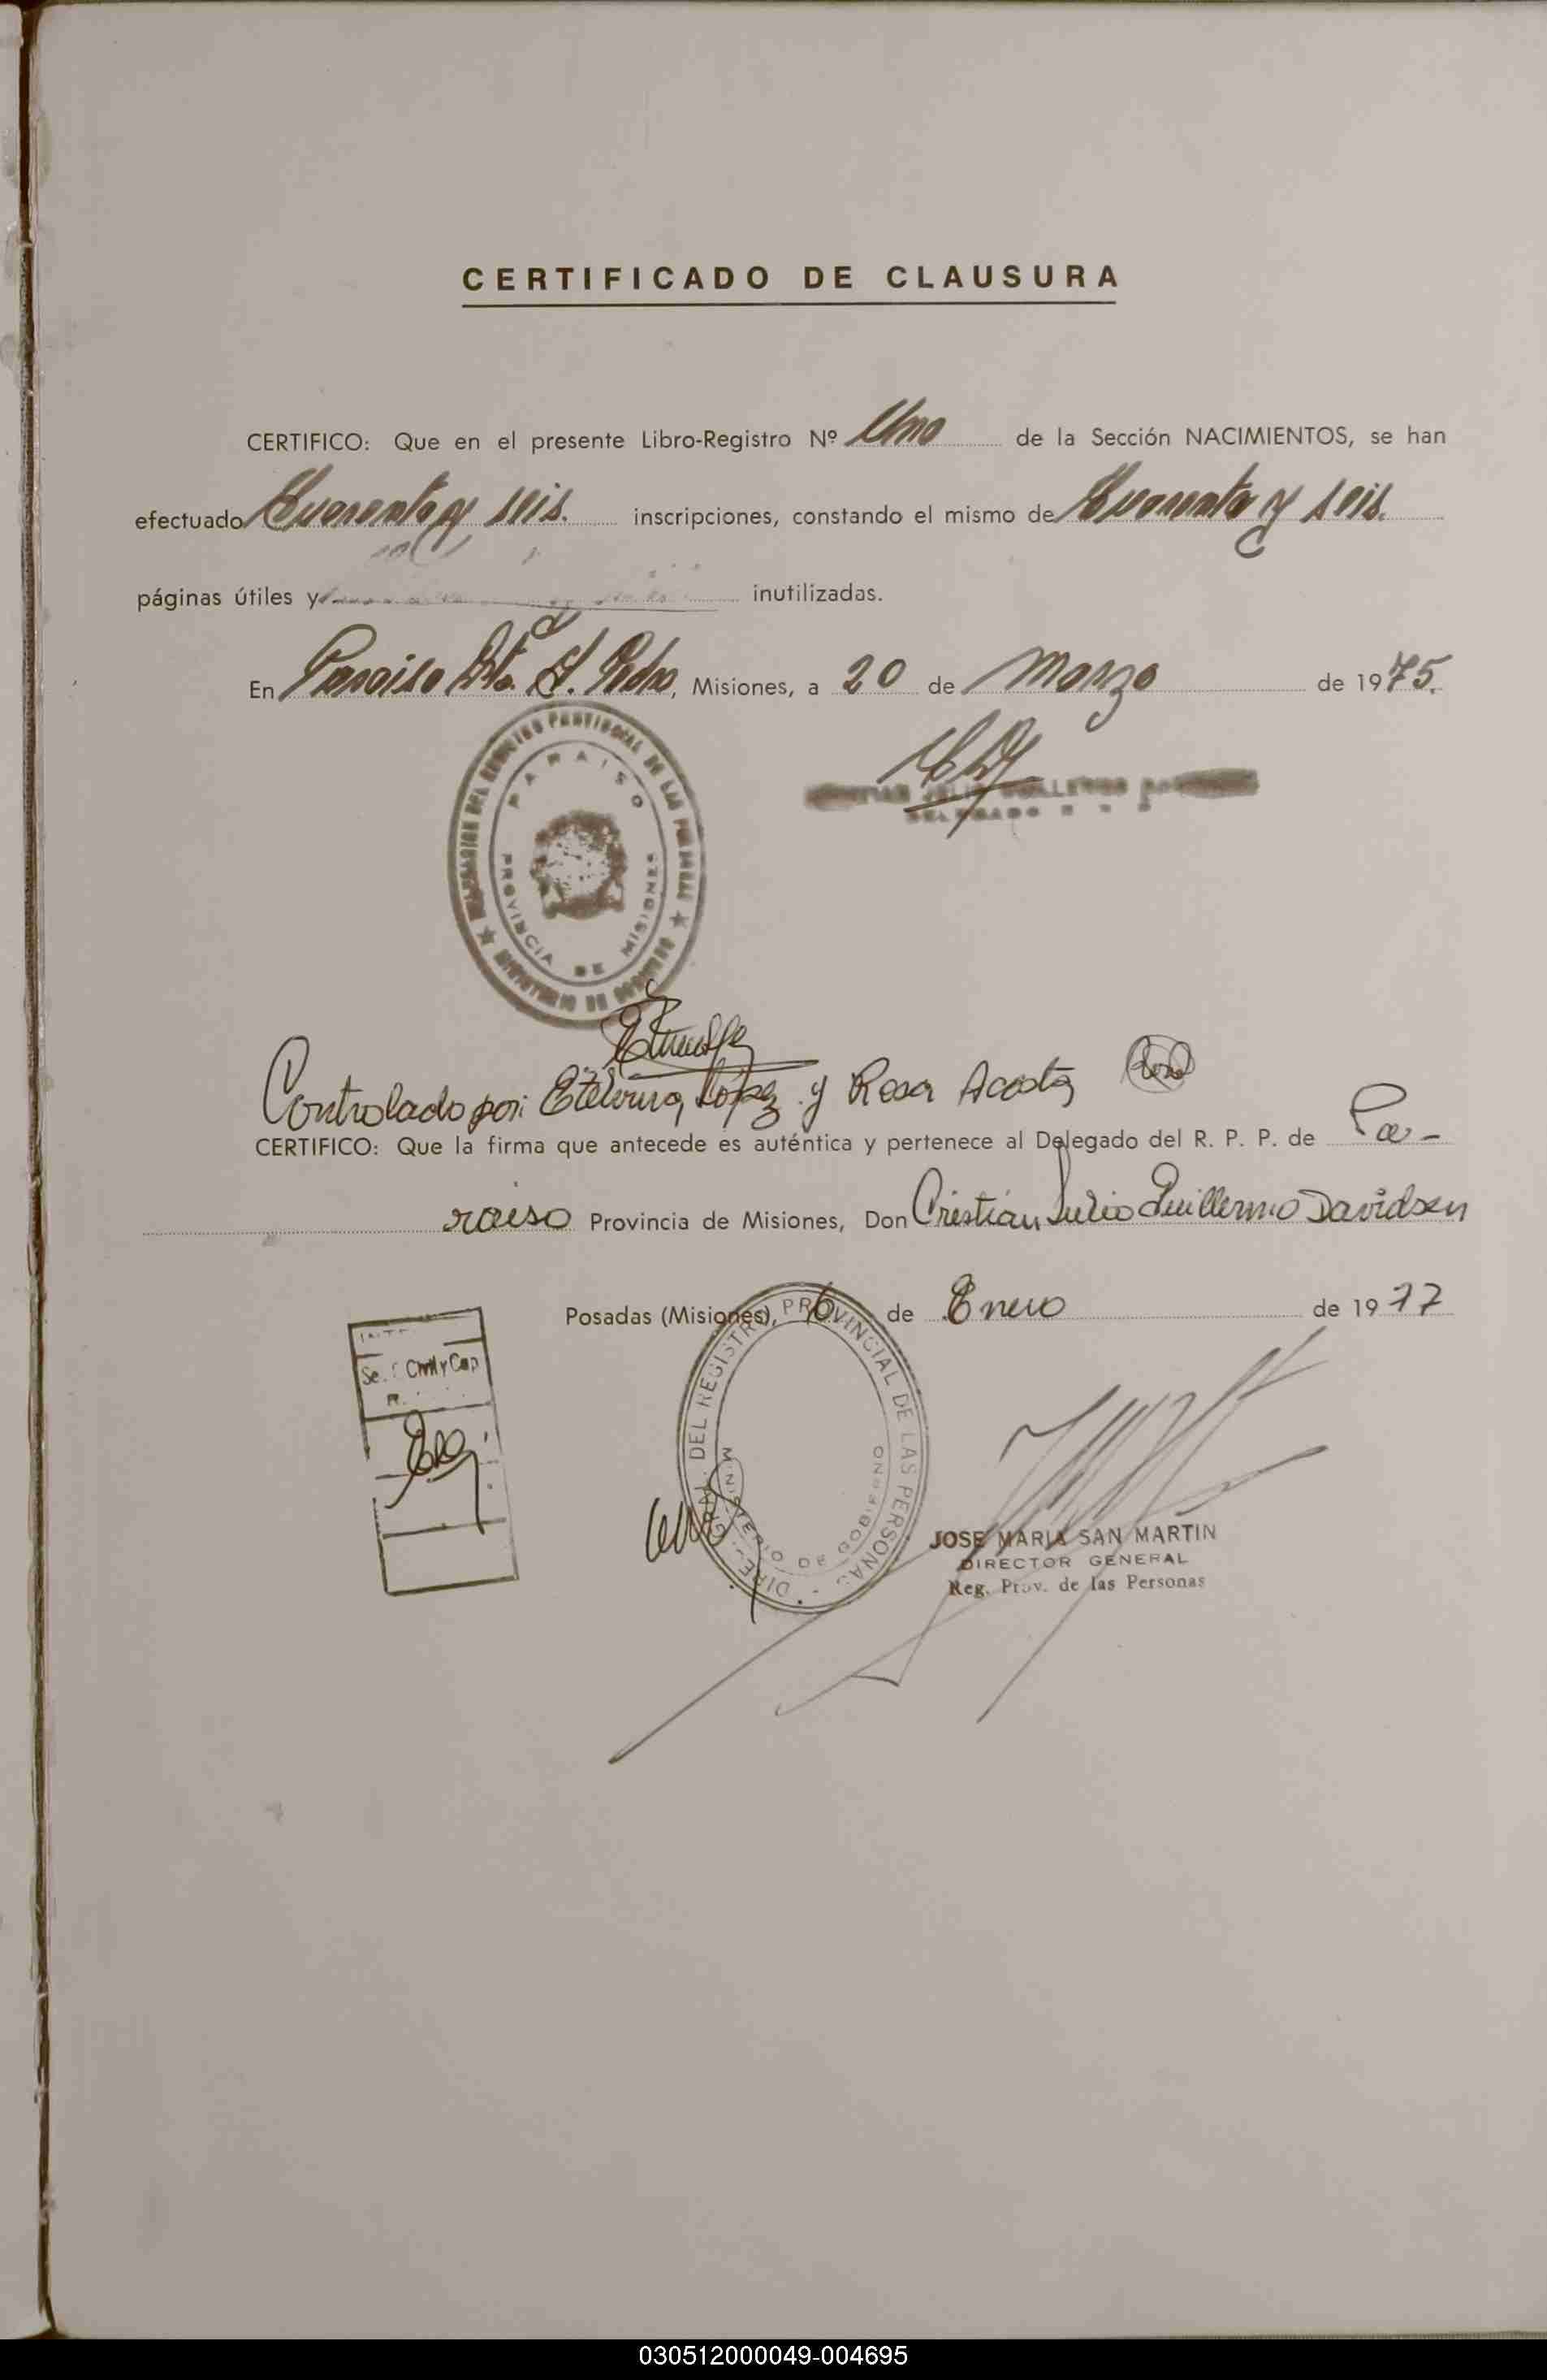 CERTIFICADO DE CLAUSURA
CERTIFICO: Que en el presente Libro-Registro Nº Uno de la Sección NACIMIENTOS, se han
efectuado Cuarenta y seis. inscripciones, constando el mismo de Cuarenta y seis.
páginas útiles y inutilizadas.
En Paraiso Dto. S. Pedro, Misiones, a 20 de Marzo de 1975.
DELEGACION DEL REGISTRO PROVINCIAL DE LAS PERSONAS
PARAISO
PROVINCIA DE MISIONES
MINISTERIO DE GOBIERNO
CRISTIAN JULIO GUILLERMO
DELEGADO
Controlado por: Etelvina López y Rosa Acosta
CERTIFICO: Que la firma que antecede es auténtica y pertenece al Delegado del R. P. P. de Pa-
raiso Provincia de Misiones, Don Cristian Julio Guillermo Davidsen
Posadas (Misiones), 6 de Enero de 1977
DEL REGISTRO PROVINCIAL DE LAS PERSONAS
MINISTERIO DE GOBIERNO
Civil y Cap
JOSE MARIA SAN MARTIN
DIRECTOR GENERAL
Reg. Prov. de las Personas
030512000049-004695